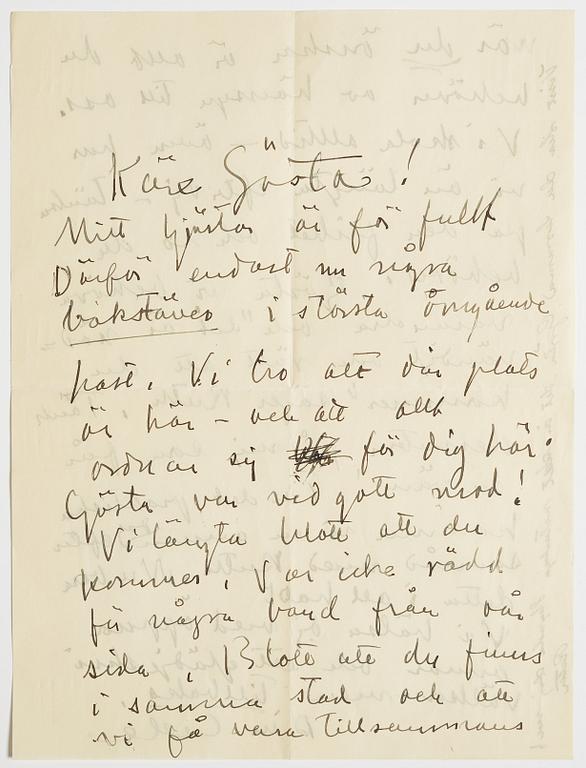 Käre Gösta!
Mitt hjärta är för fullt
Därför endast nu några
bokstäver i största omgående
hast. Vi tro att din plats
är här – och att allt
ordnar sig för dig här.
Gösta var vid gott mod!
Vi längta blott att du
kommer, Var icke rädd
för några band från vår
sida, Blott att du finns
i samma stad och att
vi få vara tillsammans